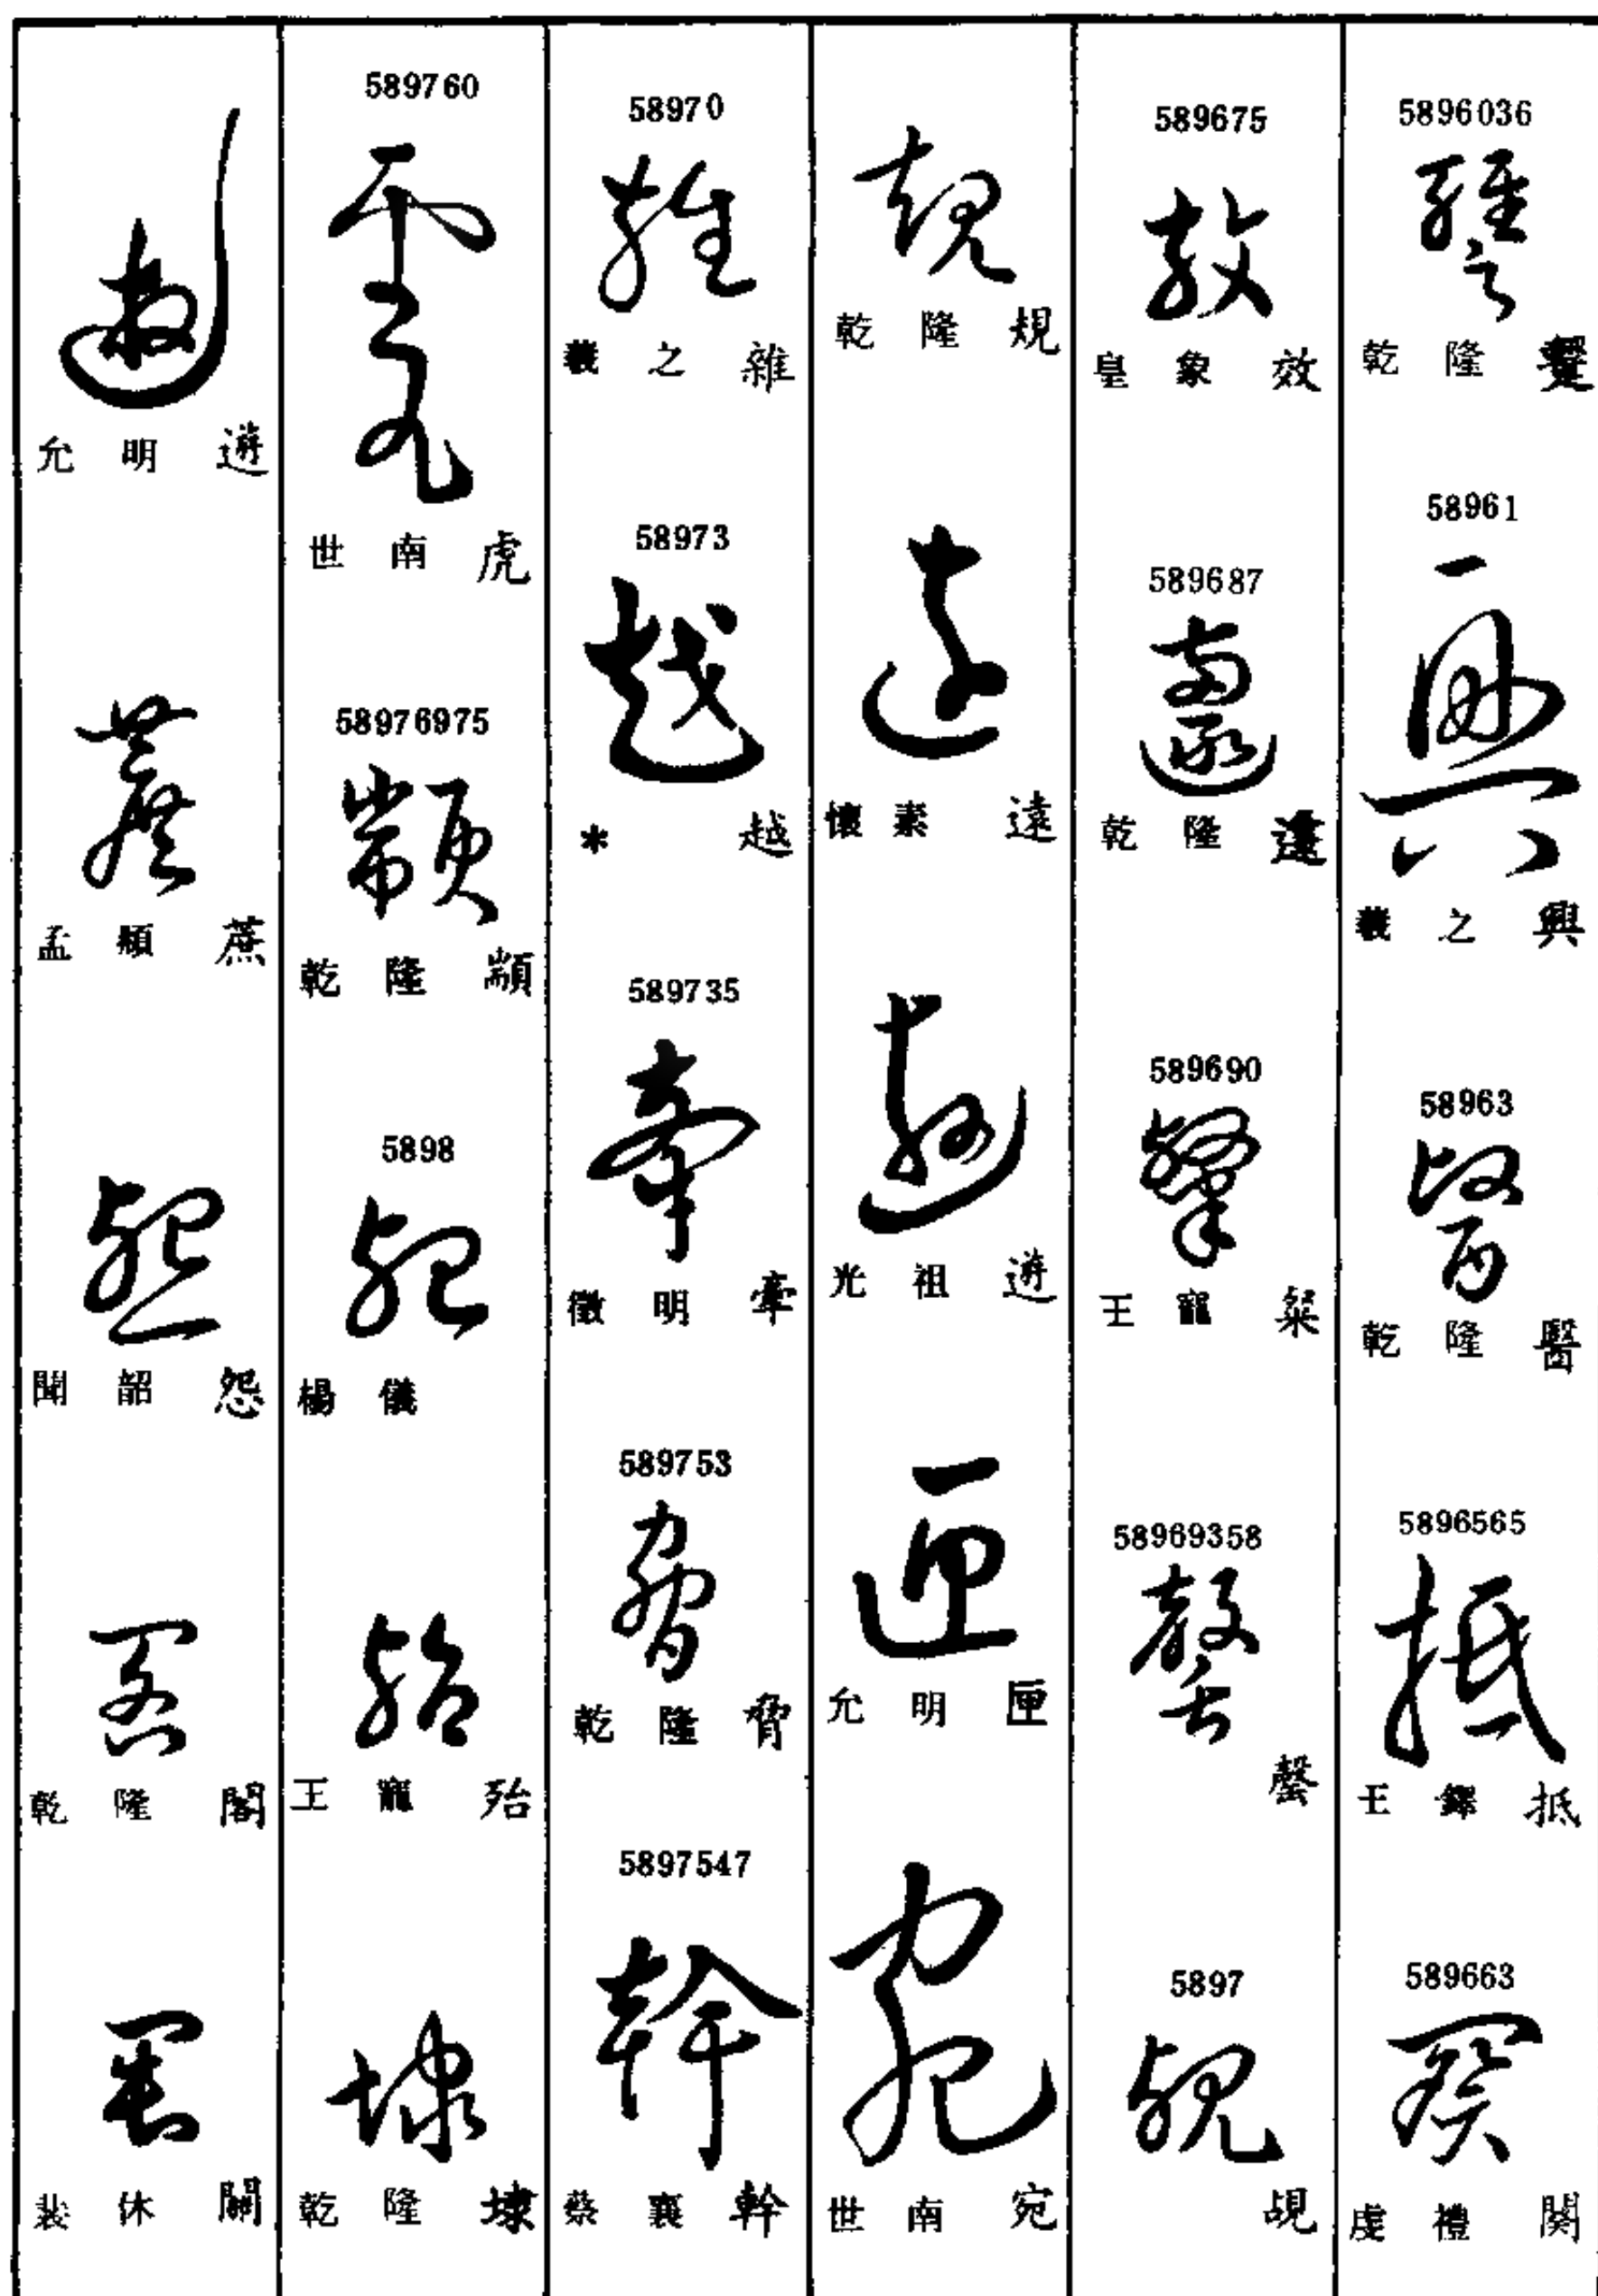 5896036
乾隆
58961
羲之 興
58963
乾隆 醫
5896565
王鐸 抵
589663
虞禮 闋
589675
皇象 效
589687
乾隆 邃
589690
王寵 粲
58969358
罄
5897
覘
乾隆 規
懷素 遠
光祖 遊
允明 匣
世南 宛
58970
羲之 雜
58973
* 越
589735
徵明 牽
589753
乾隆 脅
5897547
蔡襄 幹
589760
世南 虎
58976975
乾隆 顓
5898
楊儀
王寵 殆
乾隆 埭
允明 遊
孟頫 蔗
聞韶 怨
乾隆 閣
裴休 關